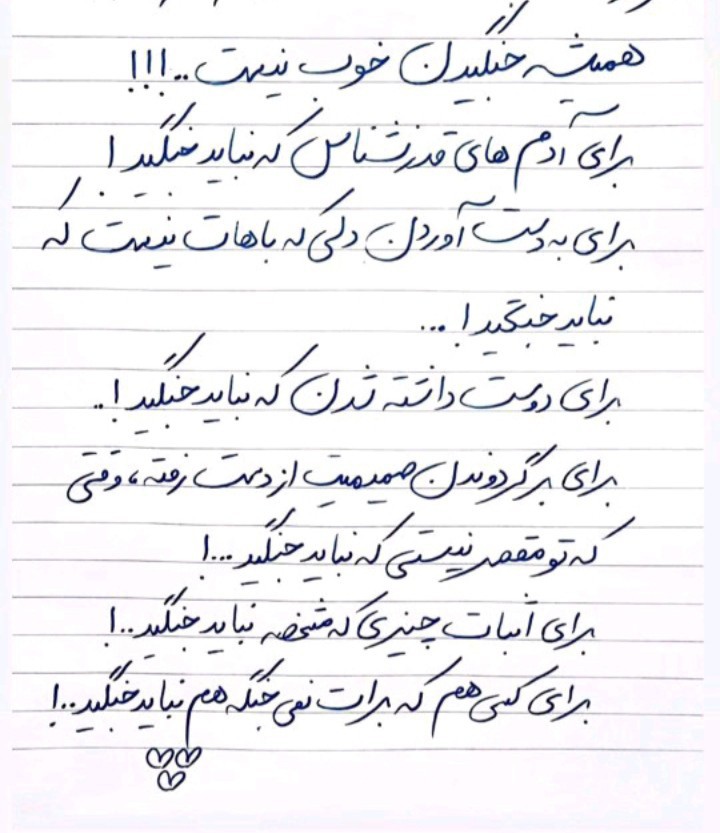 همیشه جنگیدن خوب نیست..!!!
برای آدم های قدرنشناس که نباید جنگید!
برای به دست آوردن دلی که باهات نیست که
نباید جنگید!...
برای دوست داشته شدن که نباید جنگید!..
برای برگردوندن صمیمیت از دست رفته، وقتی
که تو مقصر نیستی که نباید جنگید...!
برای اثبات چیزی که مشخصه نباید جنگید..!
برای کسی هم که برات نمی جنگه هم نباید جنگید..!